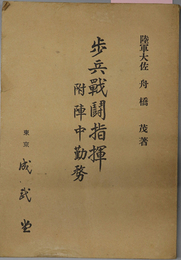 陸軍大佐 舟橋 茂著
歩兵戰鬪指揮
附陣中勤務
東京 成武堂